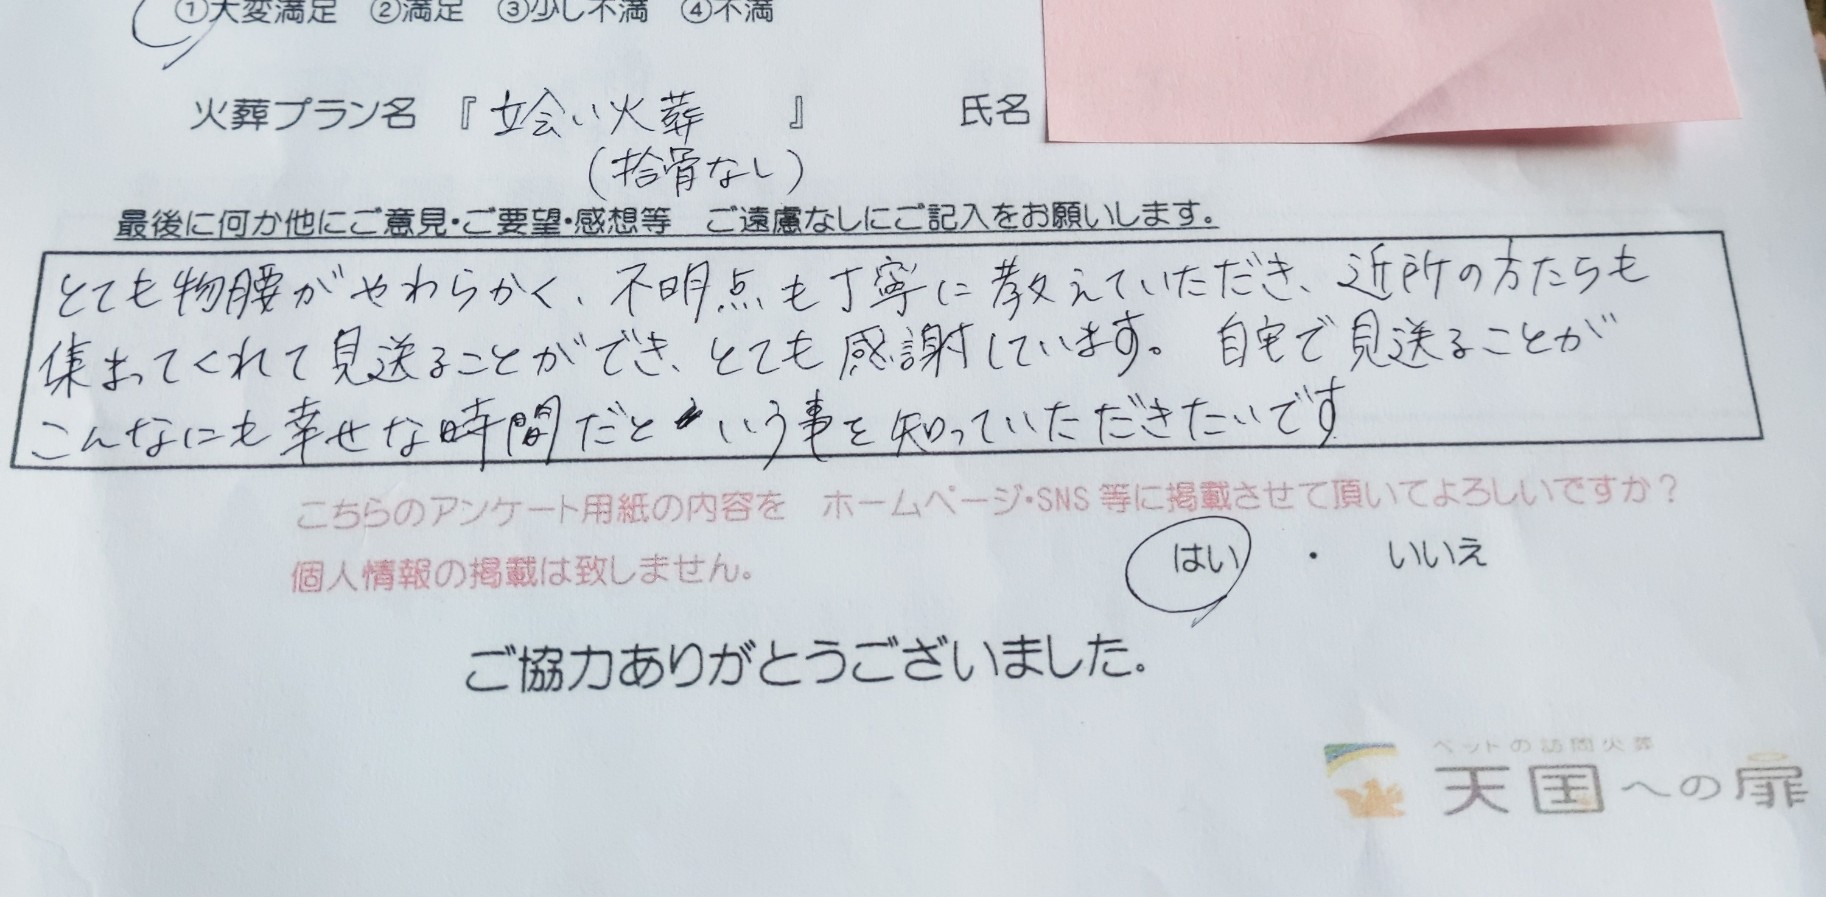 ①大変満足 ②満足 ③少し不満 ④不満
火葬プラン名 『立会い火葬 』 氏名
(拾骨なし)
最後に何か他にご意見・ご要望・感想等 ご遠慮なしにご記入をお願いします。
とても物腰がやわらかく、不明点も丁寧に教えていただき、近所の方たちも
集まってくれて見送ることができ、とても感謝しています。 自宅で見送ることが
こんなにも幸せな時間だという事を知っていただきたいです
こちらのアンケート用紙の内容を ホームページ・SNS等に掲載させて頂いてよろしいですか？
個人情報の掲載は致しません。 はい ・ いいえ
ご協力ありがとうございました。
ペットの訪問火葬
天国への扉